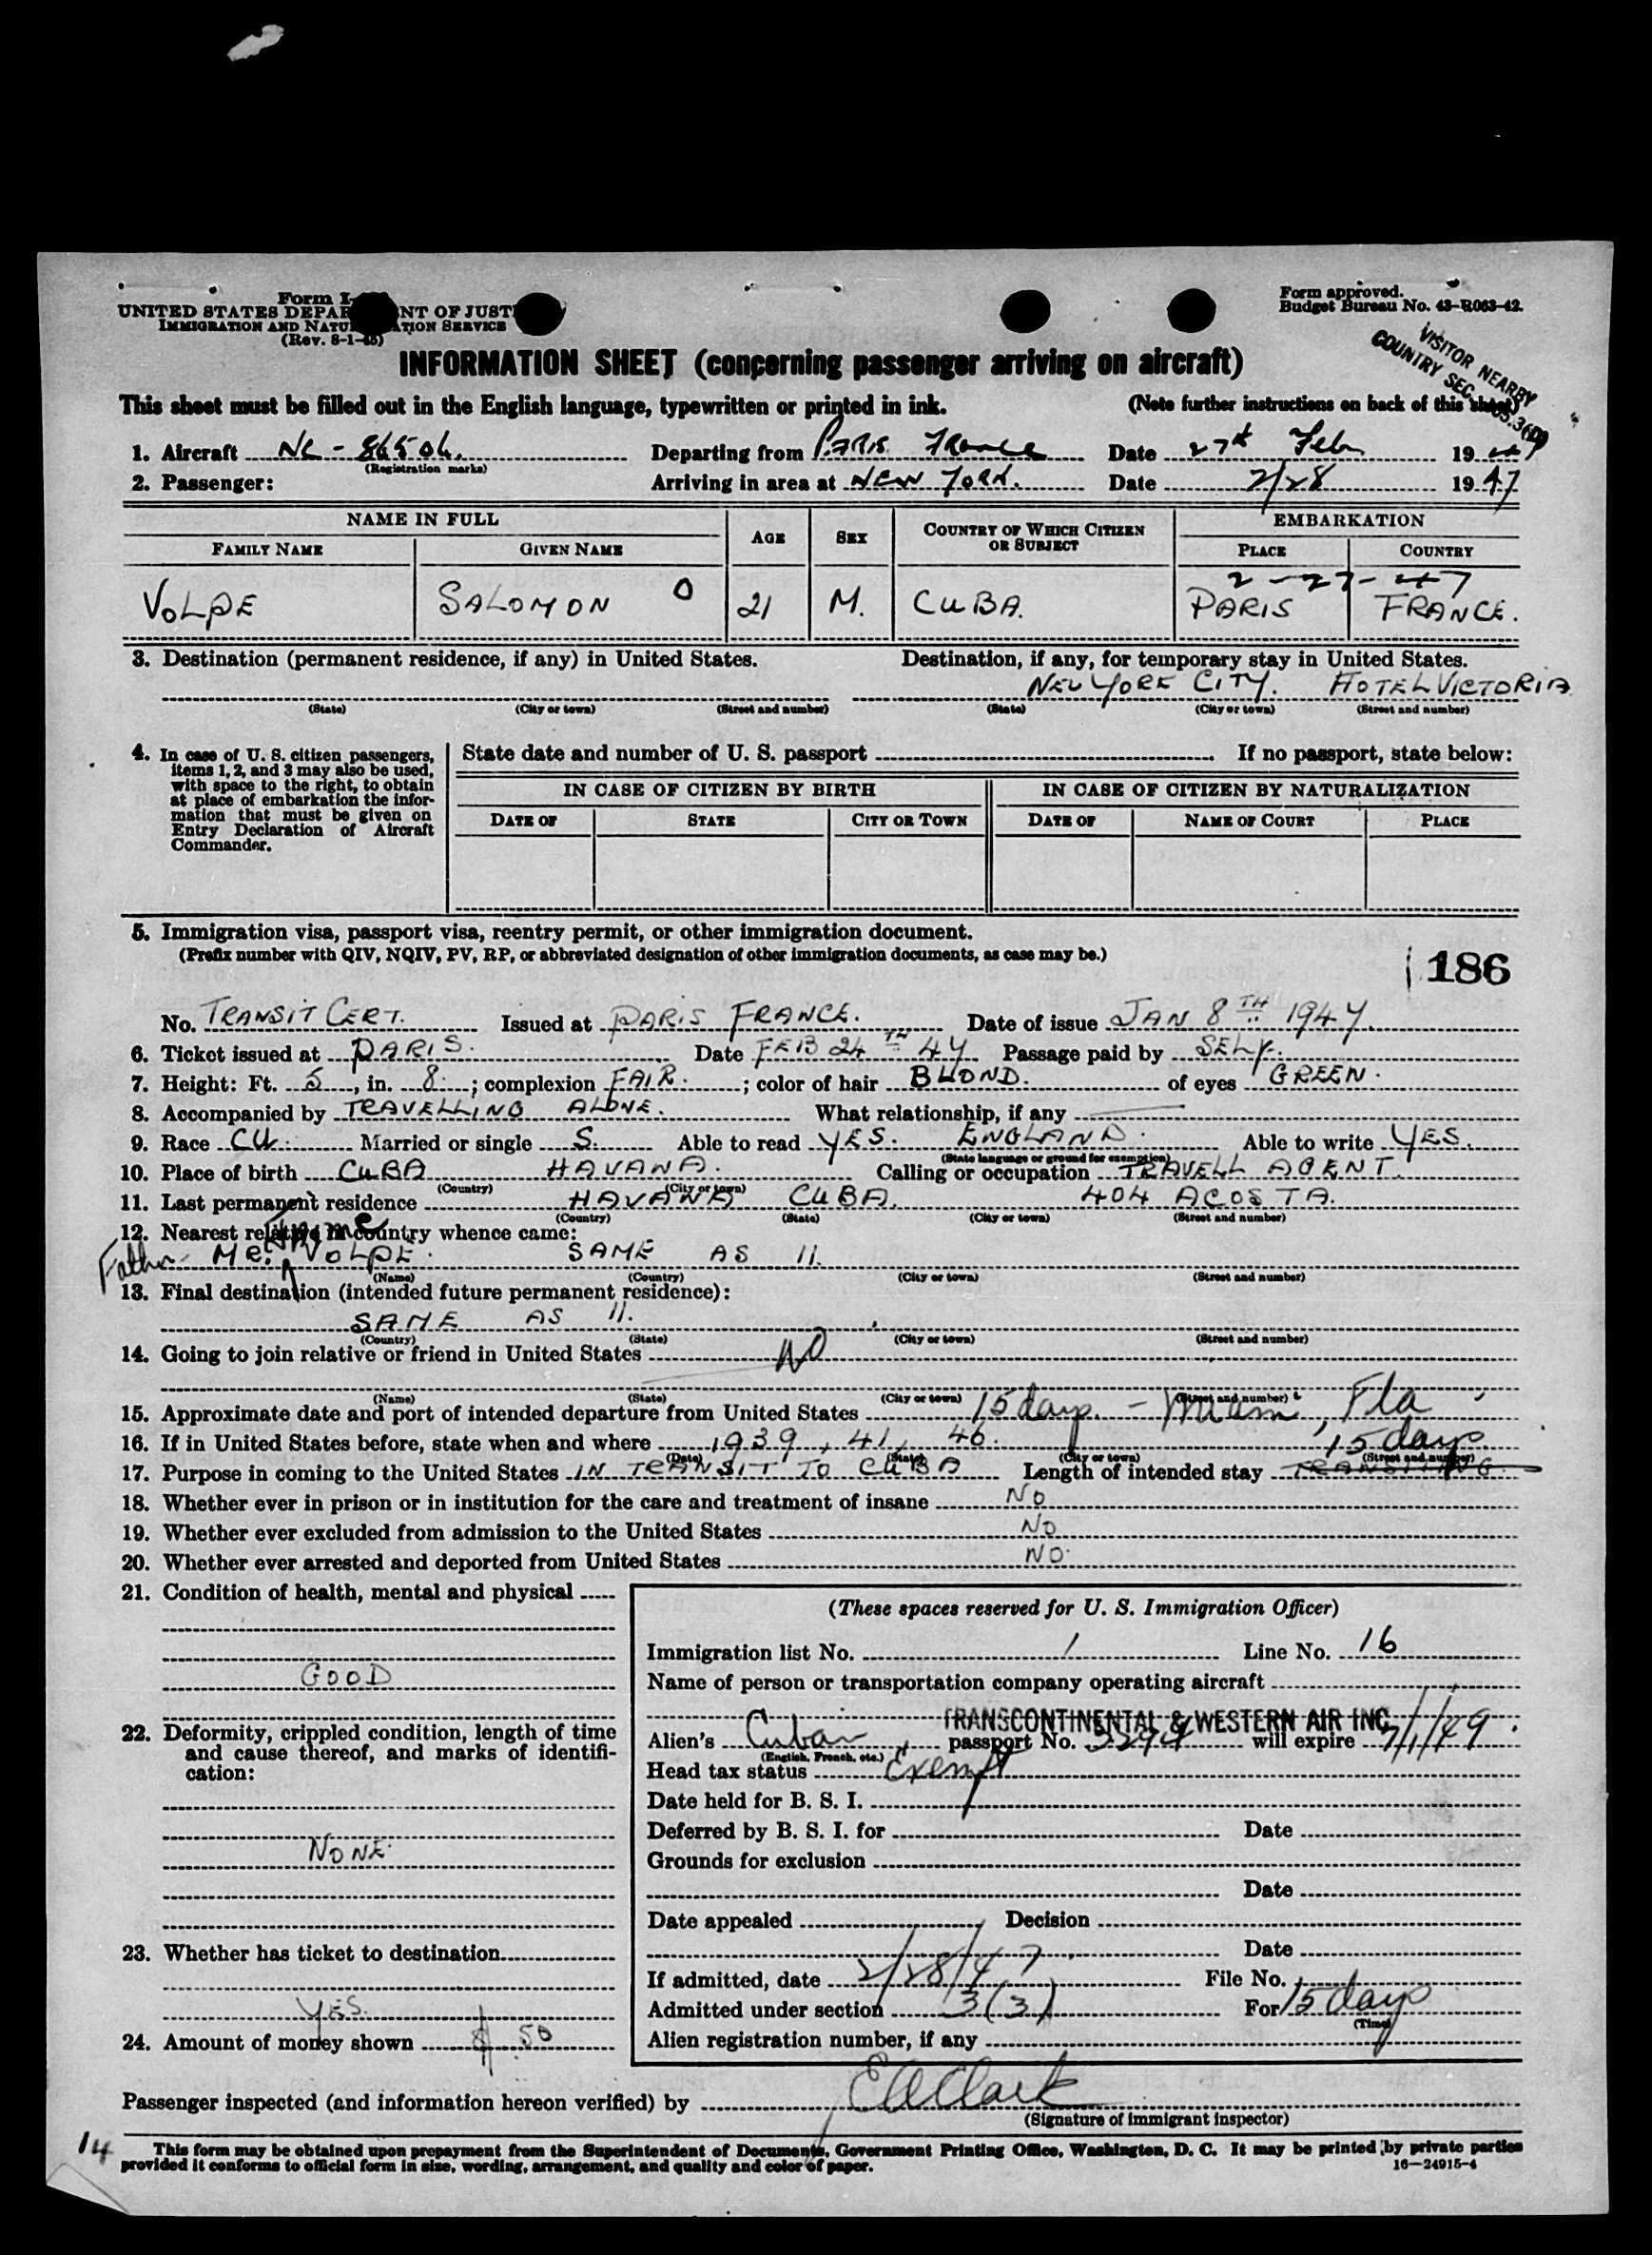 Form I-
UNITED STATES DEPAR NT OF JUST
IMMIGRATION AND NATU ATION SERVICE
(Rev. 8-1-45)
Form approved.
Budget Bureau No. 43-R063-42.
VISITOR NEARBY
COUNTRY SEC.
INFORMATION SHEET (concerning passenger arriving on aircraft)
This sheet must be filled out in the English language, typewritten or printed in ink. (Note further instructions on back of this sheet)
1. Aircraft NC - 86506. Departing from PARIS FRANCE Date 27th Feb 1947
(Registration marks)
2. Passenger: Arriving in area at NEW YORK. Date 2/28 1947
NAME IN FULL AGE SEX COUNTRY OF WHICH CITIZEN OR SUBJECT EMBARKATION
FAMILY NAME GIVEN NAME PLACE COUNTRY
2-27-47
VOLPE SALOMON O 21 M. CUBA. PARIS FRANCE.
3. Destination (permanent residence, if any) in United States. Destination, if any, for temporary stay in United States.
NEW YORK CITY. HOTEL VICTORIA
(State) (City or town) (Street and number) (State) (City or town) (Street and number)
4. In case of U. S. citizen passengers,
items 1, 2, and 3 may also be used,
with space to the right, to obtain
at place of embarkation the infor-
mation that must be given on
Entry Declaration of Aircraft
Commander.
State date and number of U. S. passport If no passport, state below:
IN CASE OF CITIZEN BY BIRTH IN CASE OF CITIZEN BY NATURALIZATION
DATE OF STATE CITY OR TOWN DATE OF NAME OF COURT PLACE
5. Immigration visa, passport visa, reentry permit, or other immigration document.
(Prefix number with QIV, NQIV, PV, RP, or abbreviated designation of other immigration documents, as case may be.)
186
No. TRANSIT CERT. Issued at PARIS FRANCE. Date of issue JAN 8TH 1947.
6. Ticket issued at PARIS. Date FEB 24TH 47 Passage paid by SELF.
7. Height: Ft. 5, in. 8; complexion FAIR. ; color of hair BLOND. of eyes GREEN.
8. Accompanied by TRAVELLING ALONE. What relationship, if any
9. Race CU. Married or single S. Able to read YES. ENGLAND. Able to write YES.
(State language or ground for exemption)
10. Place of birth CUBA HAVANA. Calling or occupation TRAVELL AGENT.
(Country) (City or town)
11. Last permanent residence HAVANA CUBA. 404 ACOSTA.
(Country) (State) (City or town) (Street and number)
12. Nearest relative in country whence came:
Father MR. VOLPE. SAME AS 11.
(Name) (Country) (City or town) (Street and number)
13. Final destination (intended future permanent residence):
SAME AS 11.
(Country) (State) (City or town) (Street and number)
14. Going to join relative or friend in United States NO
(Name) (State) (City or town) (Street and number)
15. Approximate date and port of intended departure from United States 15 days - Miami, Fla
16. If in United States before, state when and where 1939, 41, 46.
(Date) (State) (City or town) (Street and number)
15 days
17. Purpose in coming to the United States IN TRANSIT TO CUBA Length of intended stay TRANSITING.
18. Whether ever in prison or in institution for the care and treatment of insane NO
19. Whether ever excluded from admission to the United States NO
20. Whether ever arrested and deported from United States NO.
21. Condition of health, mental and physical
GOOD
22. Deformity, crippled condition, length of time
and cause thereof, and marks of identifi-
cation:
NONE.
23. Whether has ticket to destination
YES.
24. Amount of money shown $ 50
(These spaces reserved for U. S. Immigration Officer)
Immigration list No. 1 Line No. 16
Name of person or transportation company operating aircraft
TRANSCONTINENTAL & WESTERN AIR INC.
Alien's Cuban passport No. 3294 will expire 7/1/49.
(English, French, etc.)
Head tax status Exempt
Date held for B. S. I.
Deferred by B. S. I. for Date
Grounds for exclusion
Date
Date appealed Decision
Date
If admitted, date 2/28/47 File No.
Admitted under section 3(3) For 15 days
(Time)
Alien registration number, if any
Passenger inspected (and information hereon verified) by EAClark
(Signature of immigrant inspector)
14
This form may be obtained upon prepayment from the Superintendent of Documents, Government Printing Office, Washington, D. C. It may be printed by private parties
provided it conforms to official form in size, wording, arrangement, and quality and color of paper. 16—24915-4